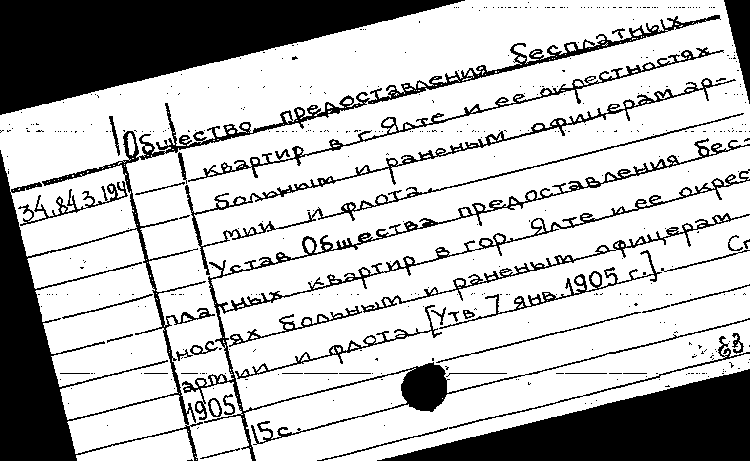 Общество предоставления бесплатных
квартир в г. Ялте и ее окрестностях
больным и раненым офицерам ар-
мии и флота.
34.843.194
Устав Общества предоставления бес-
платных квартир в гор. Ялте и ее окрест
ностях больным и раненым офицерам
армии и флота. [Утв. 7 янв. 1905 г.]. Сп
1905
15 с.